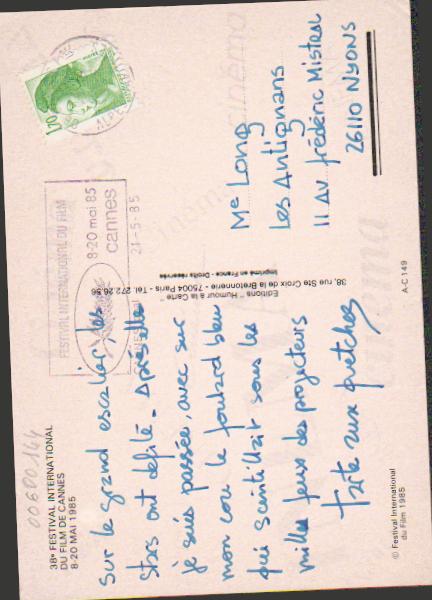 38e FESTIVAL INTERNATIONAL
DU FILM DE CANNES
8-20 MAI 1985
00680144
sur le grand escalier, les
stars ont défilé - Après elles
je suis passée, avec sur
mon cou le foulard bleu
qui scintillait sous les
mille feux des projecteurs
Tarte aux quetches
© Festival International
du Film 1985
Editions "Humour à la Carte"
38, rue Ste Croix de la Bretonnerie - 75004 Paris - Tél. 272.26.86
Imprimé en France - Droits réservés
FESTIVAL INTERNATIONAL DU FILM
8-20 mai 85
cannes
21-5-85
1,70
Me Long
Les Antignans
11 Av Frédéric Mistral
26110 NYONS
A-C 149